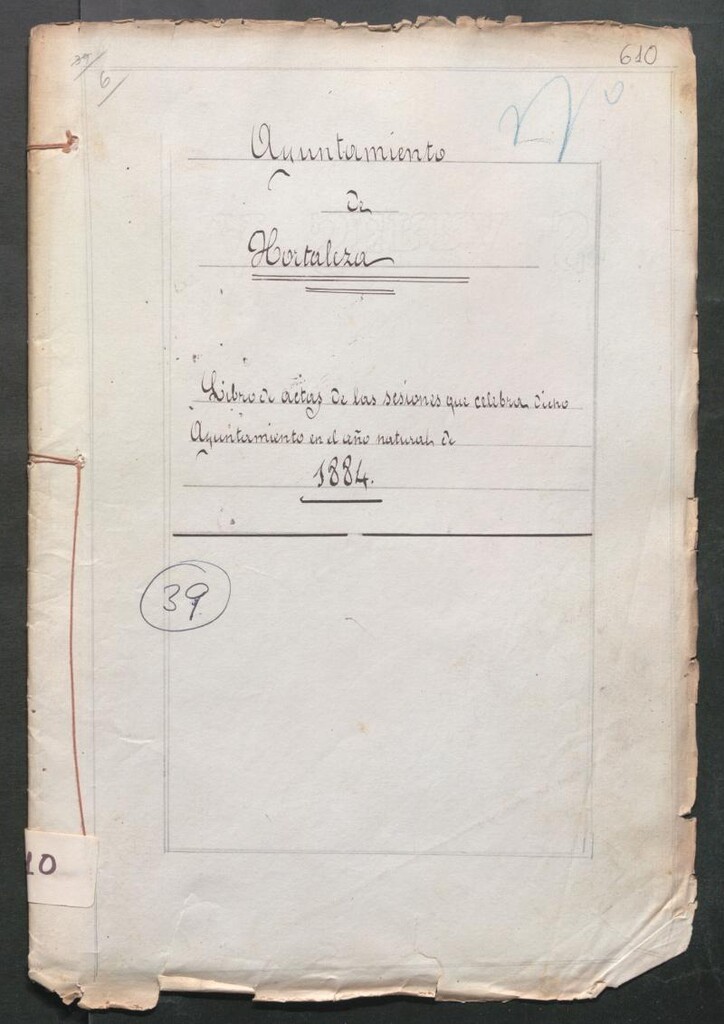 610
6
Ayuntamiento
de
Hortaleza
Libro de actas de las sesiones que celebra dicho
Ayuntamiento en el año natural de
1884.
39
10